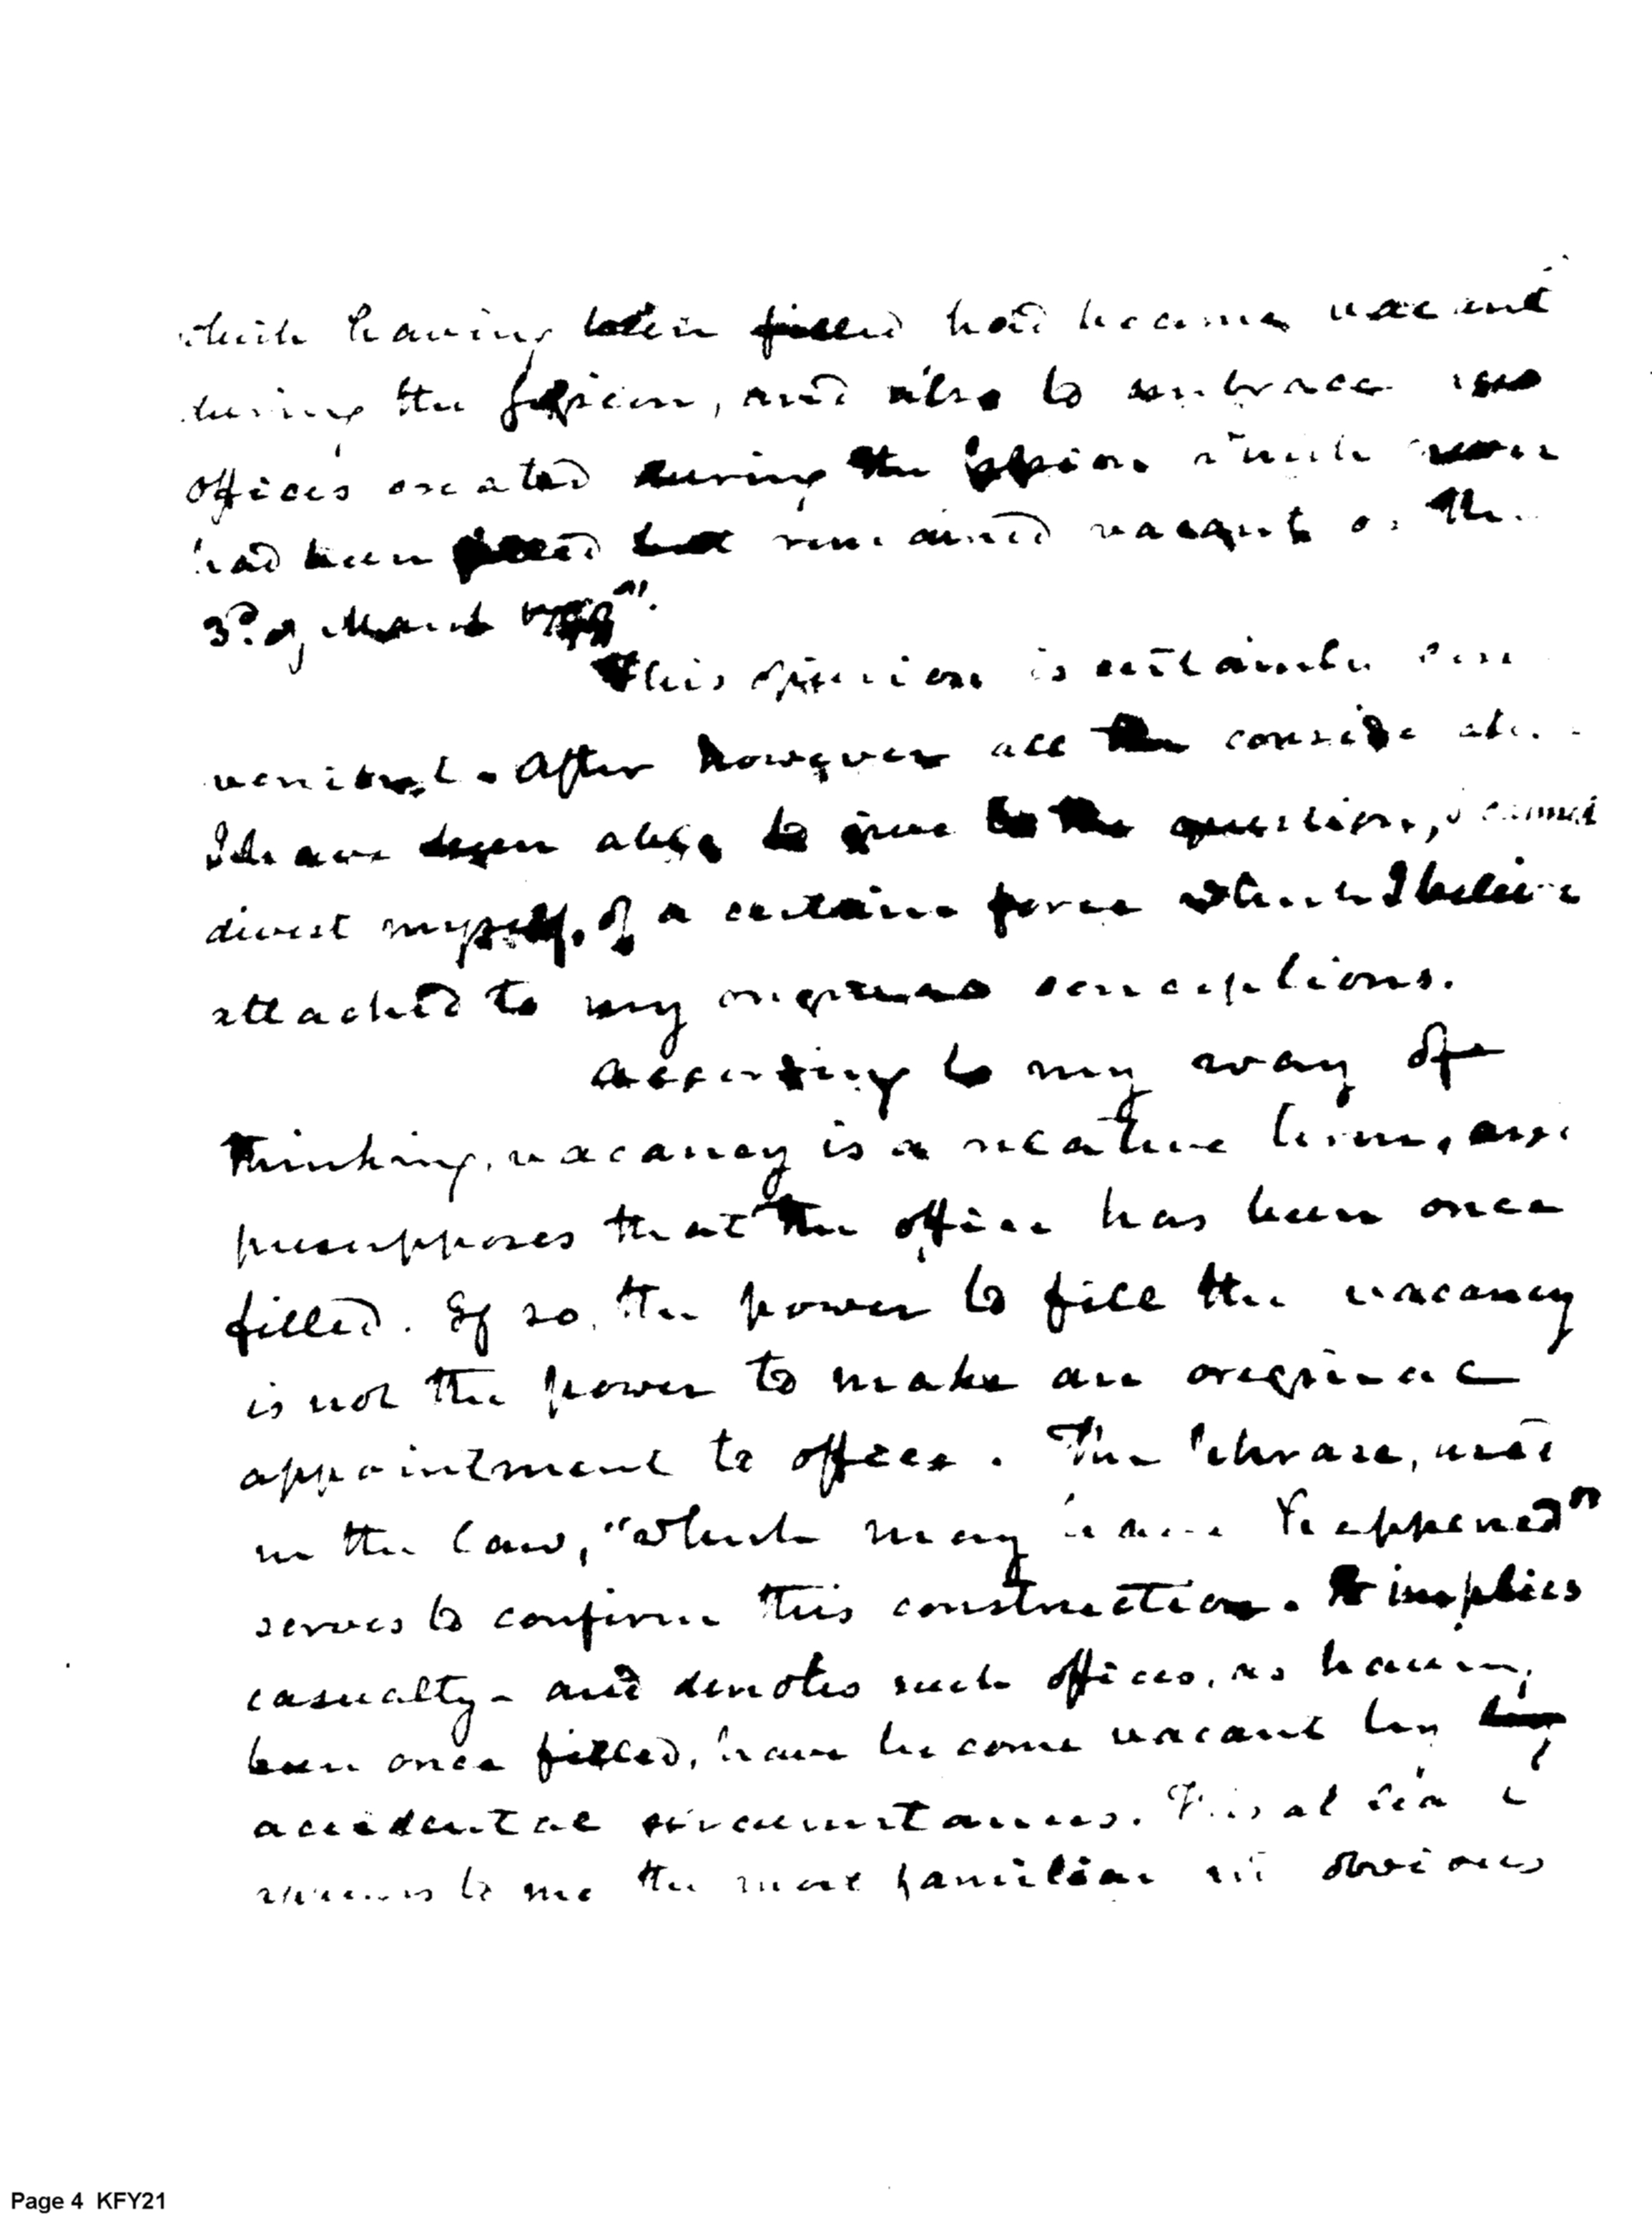 which having been filled had become vacant
during the session, and also to embrace
offices created during the session which never
had been filled but remained vacant on the
3d. of March 1799".
This opinion is certainly con
venient. After however all the consideration
I have been able to give to the question, I cannot
divest myself, of a certain force which I believe
attached to my original conceptions.
According to my way of
thinking, vacancy is a relative term, and
presupposes that the office has been once
filled. If so, the power to fill the vacancy
is not the power to make an original
appointment to office. The phrase, used
in the law, "which may have happened"
serves to confirm this construction. It implies
casualty - and denotes such offices, as having
been once filled, have become vacant by
accidental circumstances. This at least
seems to me the most familiar and obvious
Page 4 KFY21